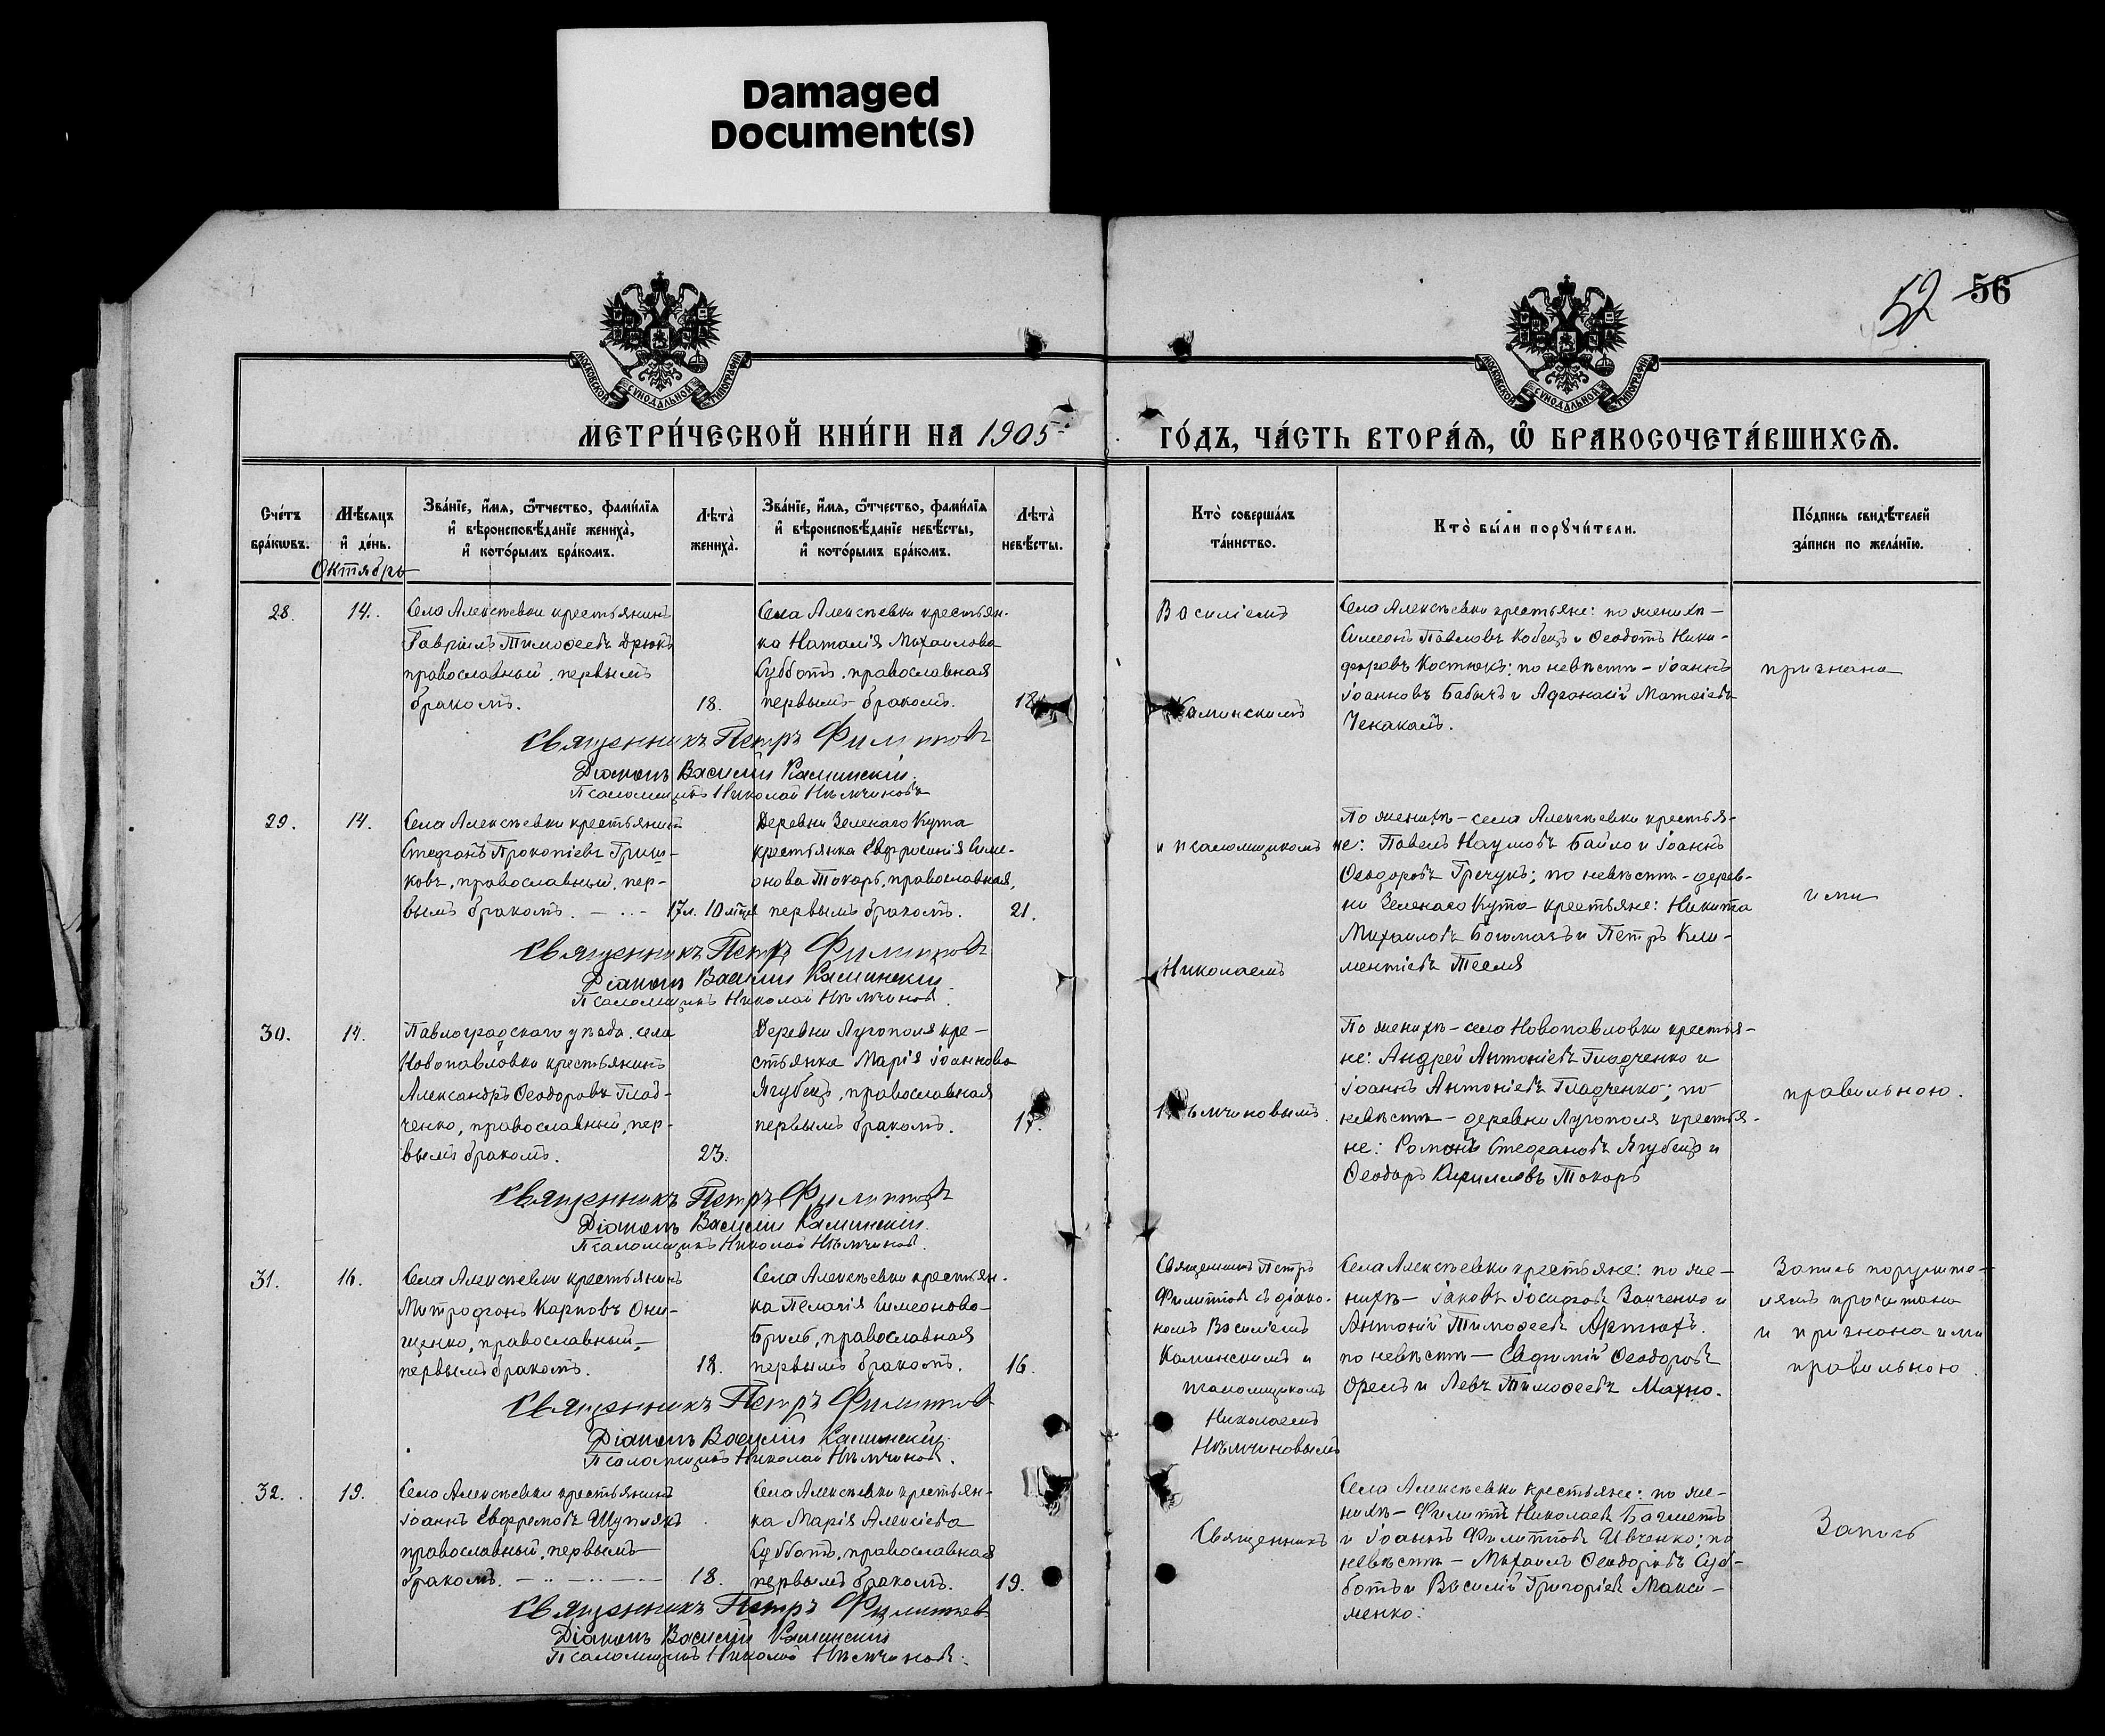 Damaged
Document(s)
52 56
МОСКОВСКОЙ СѴНОДАЛЬНОЙ ТИПОГРАФІИ
МОСКОВСКОЙ СѴНОДАЛЬНОЙ ТИПОГРАФІИ
МЕТРИ́ЧЕСКОЙ КНИ́ГИ НА 1905
ГО́ДЪ, ЧА́СТЬ ВТОРА́Ѧ, Ѿ БРАКОСОЧЕТА́ВШИХСѦ.
Сче́тъ
бра́кѡвъ.
Мѣ́сѧцъ
и҆ де́нь.
Октябрь
Зва́нїе, и҆́мѧ, ѻ҆́тчество, фами́лїѧ
и҆ вѣроисповѣ́данїе жениха̀,
и҆ кото́рымъ бра́комъ.
Лѣта̀
жениха̀.
Зва́нїе, и҆́мѧ, ѻ҆́тчество, фами́лїѧ
и҆ вѣроисповѣ́данїе невѣ́сты,
и҆ кото́рымъ бра́комъ.
Лѣта̀
невѣ́сты.
Кто̀ соверша́лъ
та́инство.
Кто̀ бы́ли порꙋчи́тели.
По́дпись свидѣ́телей
за́писи по жела́нїю.
28.
14.
Села Алексѣевки крестьянинъ
Гавріилъ Тимоѳеевъ Дрюкъ
православный, первымъ
бракомъ.
18.
Села Алексѣевки крестьян-
ка Наталія Михаилова
Субботъ, православная
первымъ бракомъ.
18
Василіемъ
Каминскимъ
Села Алексѣевки крестьяне: по женихѣ —
Симеонъ Павловъ Кобецъ и Ѳеодотъ Ники-
форовъ Костюкъ; по невѣстѣ — Іоаннъ
Іоанновъ Бабычъ и Аѳанасій Матѳіевъ
Чекакалъ.
признана
Священникъ Петръ Филиповъ
Діаконъ Василій Каминскій
Псаломщикъ Николай Нѣмчиновъ
29.
14.
Села Алексѣевки крестьянинъ
Стефанъ Прокопіевъ Гриш-
ковъ, православный, пер-
вымъ бракомъ.
17 л. 10 мѣс.
Деревни Зеленаго Кута
крестьянка Евфросинія Симе-
онова Токарь, православная,
первымъ бракомъ.
21.
и псаломщикомъ
Николаемъ
По женихѣ — села Алексѣевки крестья-
не: Павелъ Наумовъ Байло и Іоаннъ
Ѳеодоровъ Гречукъ; по невѣстѣ — дерев-
ни Зеленаго Кута крестьяне: Никита
Михаиловъ Богомазъ и Петръ Кли-
ментіевъ Тесля
ими
Священникъ Петръ Филиповъ
Діаконъ Василій Каминскій
Псаломщикъ Николай Нѣмчиновъ.
30.
14.
Павлоградскаго уѣзда, села
Новопавловки крестьянинъ
Александръ Ѳеодоровъ Глад-
ченко, православный, пер-
вымъ бракомъ.
23.
Деревни Лугополя кре-
стьянка Марія Іоаннова
Ягубецъ, православная
первымъ бракомъ.
17.
Нѣмчиновымъ.
По женихѣ — села Новопавловки крестья-
не: Андрей Антоніевъ Гладченко и
Іоаннъ Антоніевъ Гладченко; по
невѣстѣ — деревни Лугополя крестья-
не: Романъ Стефановъ Ягубецъ и
Ѳеодоръ Кирилловъ Токарь
правильною.
Священникъ Петръ Филиповъ
Діаконъ Василій Каминскій.
Псаломщикъ Николай Нѣмчиновъ.
31.
16.
Села Алексѣевки крестьянинъ
Митрофанъ Карповъ Они-
щенко, православный,
первымъ бракомъ.
18.
Села Алексѣевки крестьян-
ка Пелагія Симеонова
Бриль, православная
первымъ бракомъ.
16.
Священникъ Петръ
Филиповъ съ діако-
номъ Василіемъ
Каминскимъ и
псаломщикомъ
Николаемъ
Нѣмчиновымъ
Села Алексѣевки крестьяне: по же-
нихѣ — Іаковъ Іосифовъ Заиченко и
Антоній Тимоѳеевъ Артюхъ.
по невѣстѣ — Евфимій Ѳеодоровъ
Орелъ и Левъ Тимоѳеевъ Махно.
Запись поручите-
лямъ прочитана
и признана ими
правильною.
Священникъ Петръ Филиповъ
Діаконъ Василій Каминскій.
Псаломщикъ Николай Нѣмчиновъ.
32.
19.
Села Алексѣевки крестьянинъ
Іоаннъ Евфремовъ Шуплякъ
православный, первымъ
бракомъ.
18.
Села Алексѣевки крестьян-
ка Марія Алексіева
Субботъ, православная
первымъ бракомъ.
19.
Священникъ
Села Алексѣевки крестьяне: по же-
нихѣ — Филиппъ Николаевъ Багметъ
и Іоаннъ Филипповъ Ивченко; по
невѣстѣ — Михаилъ Ѳеодоровъ Суб-
ботъ и Василій Григоріевъ Макси-
менко.
Запись
Священникъ Петръ Филиповъ
Діаконъ Василій Каминскій
Псаломщикъ Николай Нѣмчиновъ.